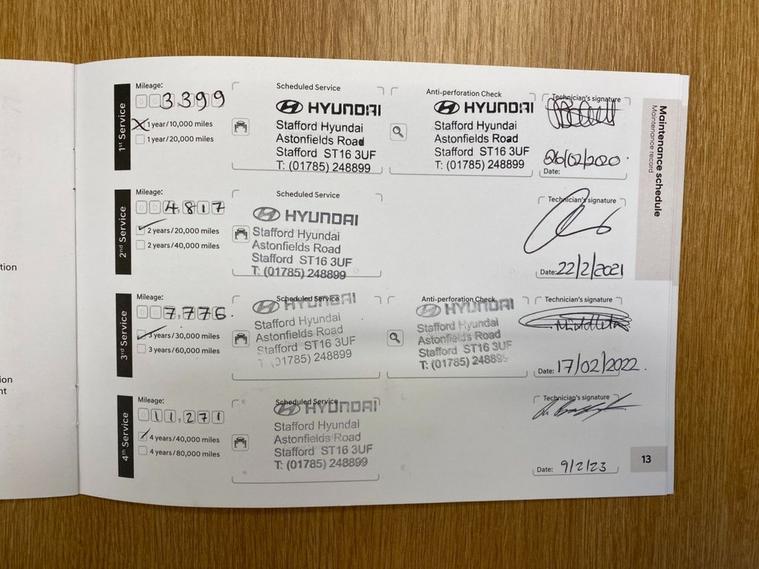 Maintenance schedule
Maintenance record
1st Service
Mileage:
003399
1 year/10,000 miles
1 year/20,000 miles
Scheduled Service
HYUNDAI
Stafford Hyundai
Astonfields Road
Stafford ST16 3UF
T: (01785) 248899
Anti-perforation Check
HYUNDAI
Stafford Hyundai
Astonfields Road
Stafford ST16 3UF
T: (01785) 248899
Technician's signature
Date: 26/02/2020.
2nd Service
Mileage:
004817
2 years/20,000 miles
2 years/40,000 miles
Scheduled Service
HYUNDAI
Stafford Hyundai
Astonfields Road
Stafford ST16 3UF
T: (01785) 248899
Technician's signature
Date: 22/2/2021
3rd Service
Mileage:
007,776.
3 years/30,000 miles
3 years/60,000 miles
Scheduled Service
HYUNDAI
Stafford Hyundai
Astonfields Road
Stafford ST16 3UF
T: (01785) 248899
Anti-perforation Check
HYUNDAI
Stafford Hyundai
Astonfields Road
Stafford ST16 3UF
T: (01785) 248899
Technician's signature
Date: 17/02/2022.
4th Service
Mileage:
011,271
4 years/40,000 miles
4 years/80,000 miles
Scheduled Service
HYUNDAI
Stafford Hyundai
Astonfields Road
Stafford ST16 3UF
T: (01785) 248899
Technician's signature
Date: 9/2/23
13